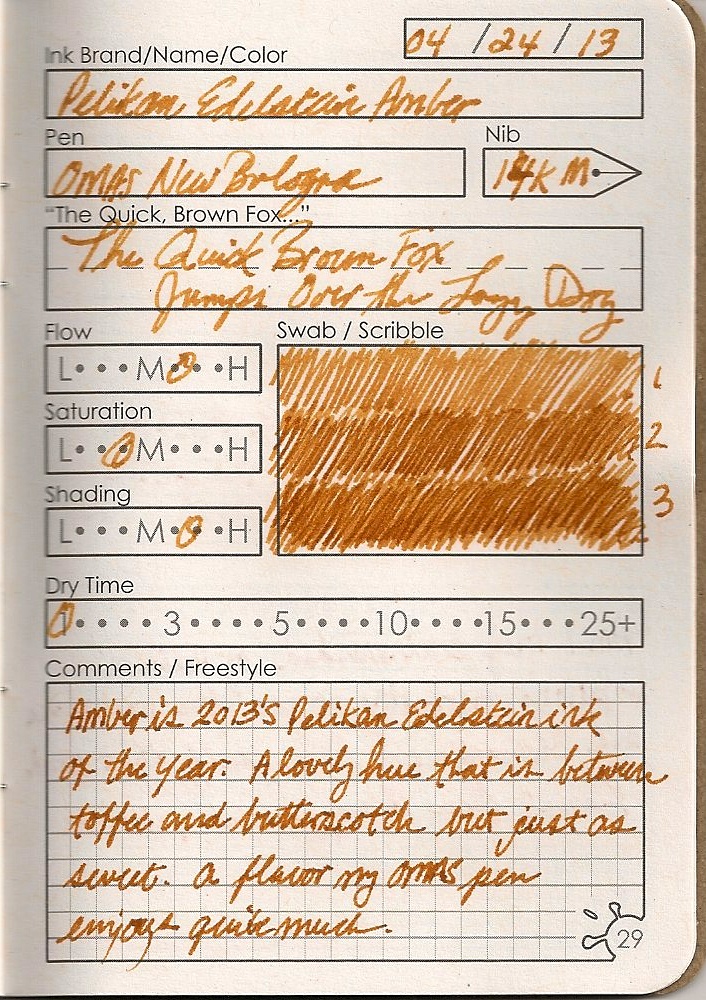 04 / 24 / 13
Ink Brand/Name/Color
Pelikan Edelstein Amber
Pen
Nib
OMAS New Bologna
14K M
"The Quick, Brown Fox..."
The Quick Brown Fox
Jumps Over the Lazy Dog
Flow
Swab / Scribble
L • • • M • • • H
1
Saturation
L • • • M • • • H
2
Shading
L • • • M • • • H
3
Dry Time
1 • • • • 3 • • • • 5 • • • • 10 • • • • 15 • • • 25+
Comments / Freestyle
Amber is 2013's Pelikan Edelstein ink
of the year. A lovely hue that is between
toffee and butterscotch but just as
sweet. A flavor my OMAS pen
enjoys quite much.
29